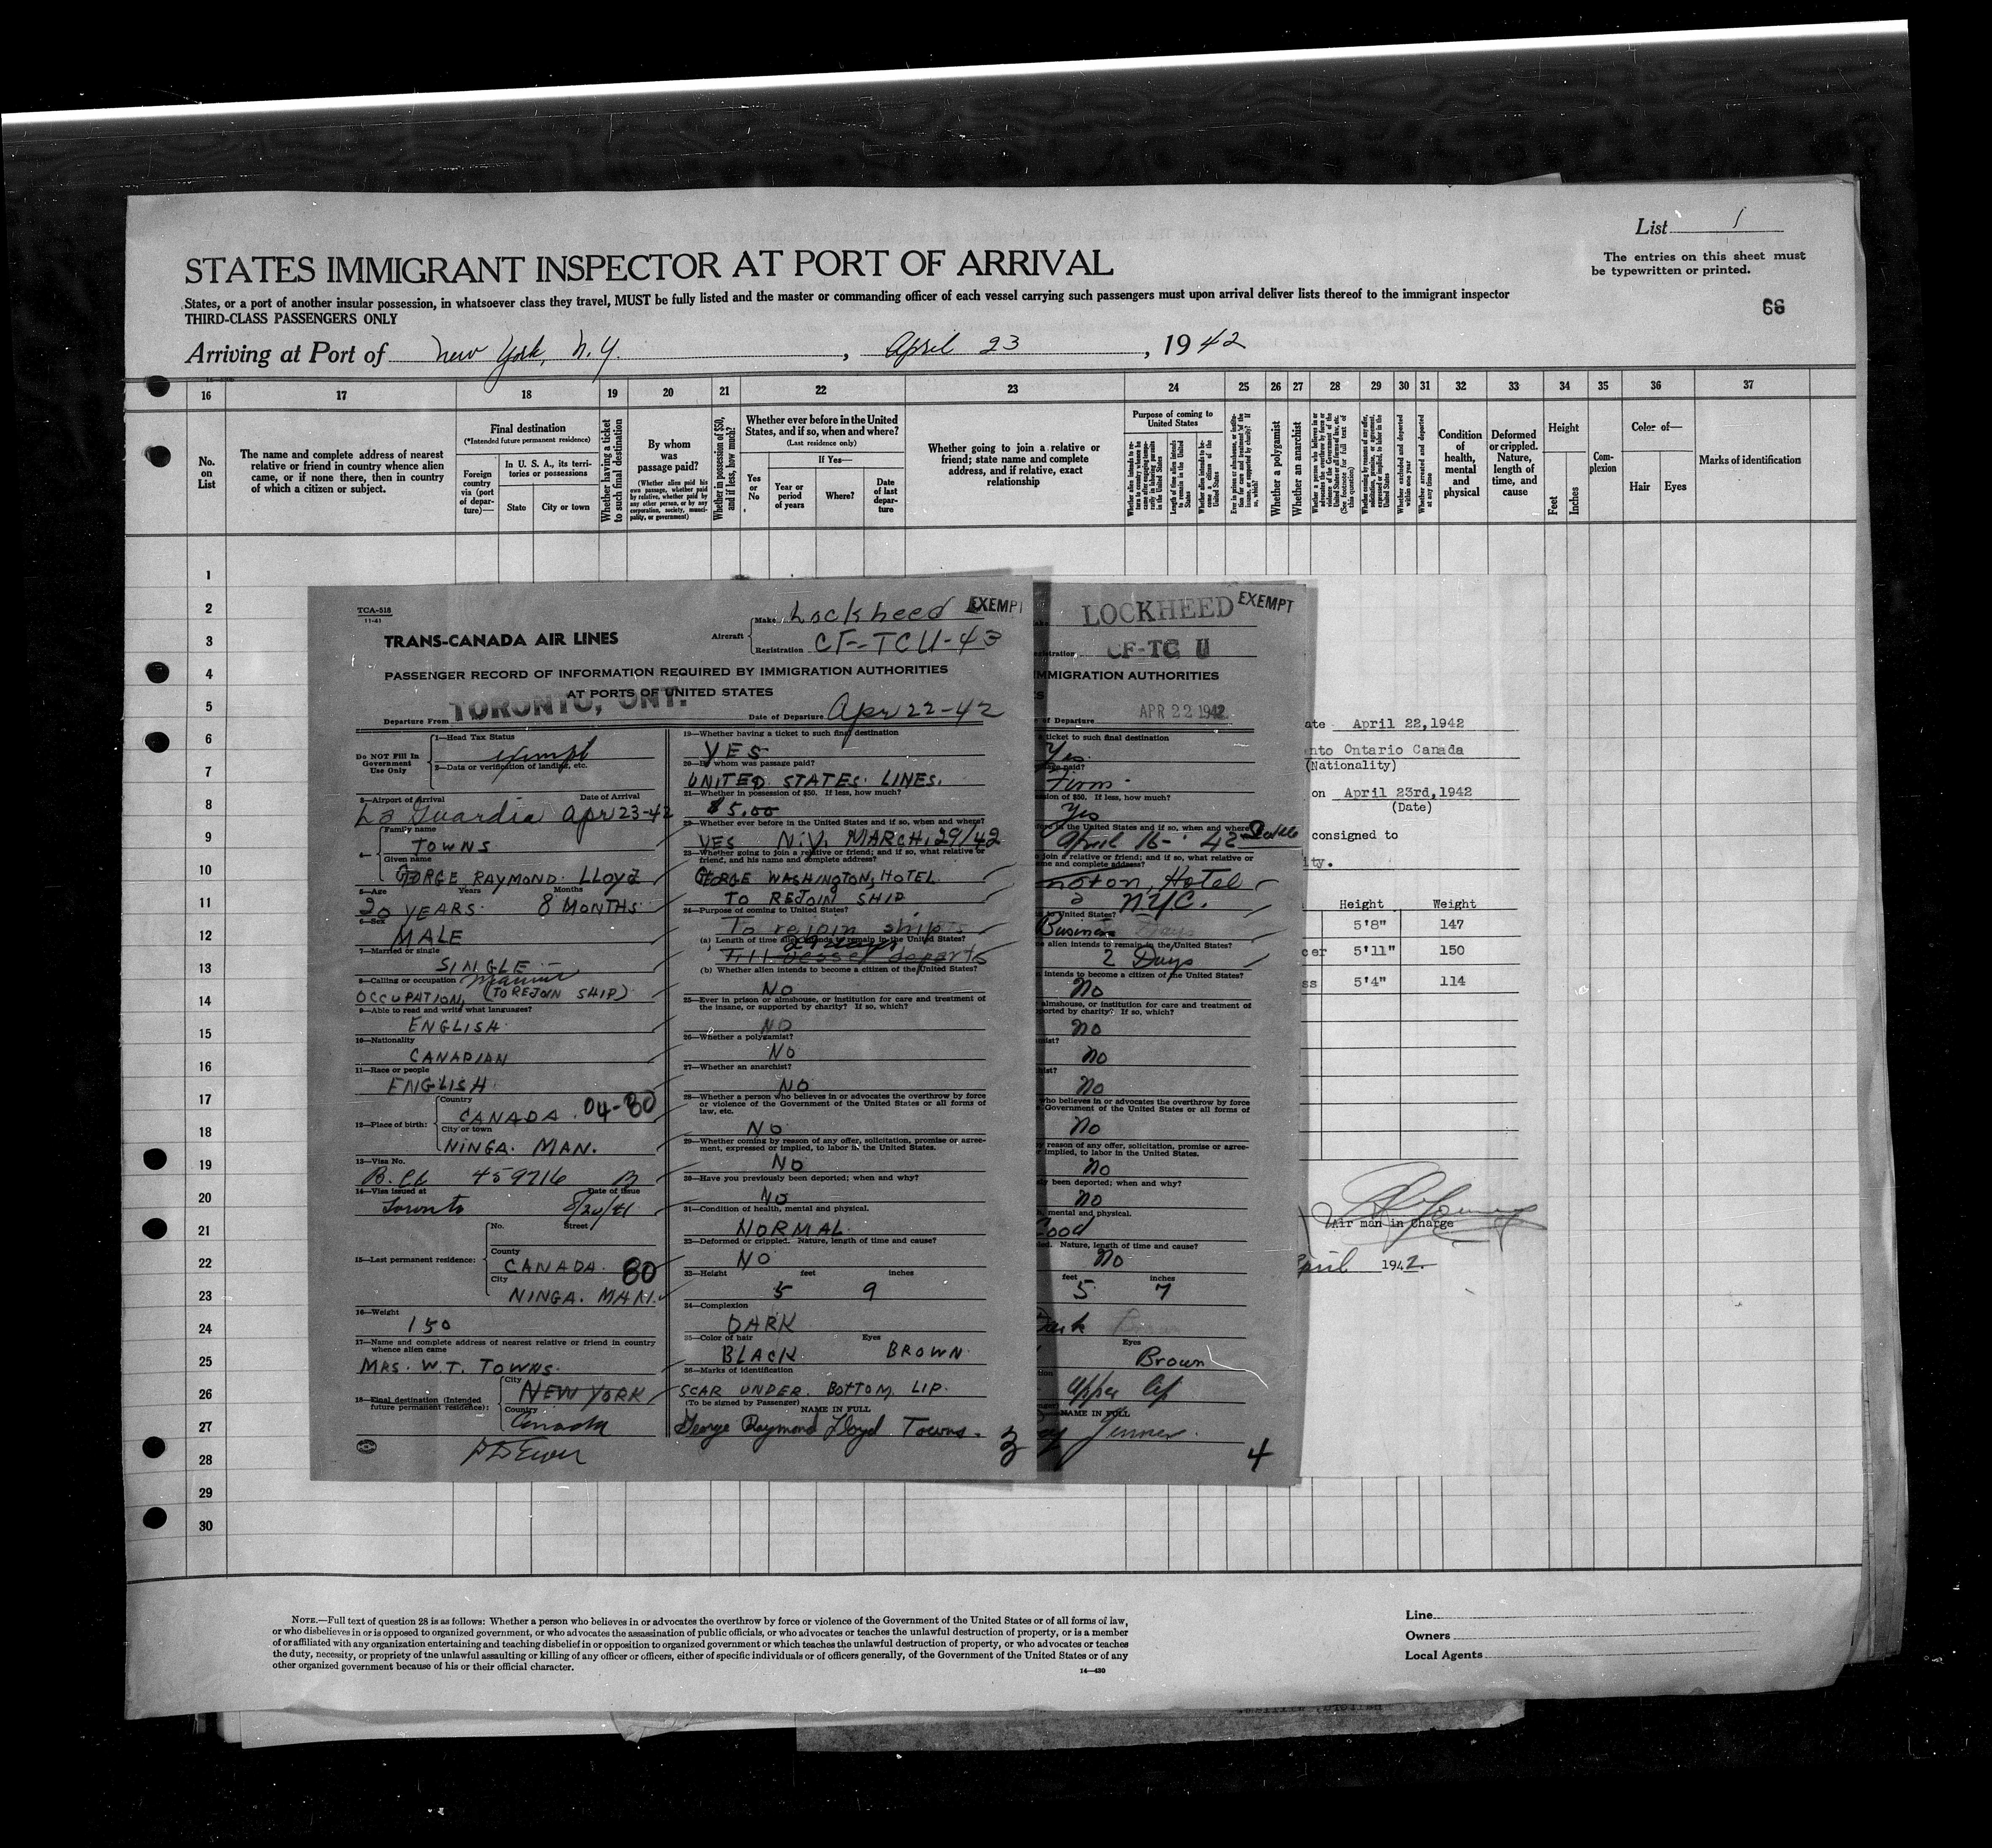 List 1
The entries on this sheet must
be typewritten or printed.
66
STATES IMMIGRANT INSPECTOR AT PORT OF ARRIVAL
States, or a port of another insular possession, in whatsoever class they travel, MUST be fully listed and the master or commanding officer of each vessel carrying such passengers must upon arrival deliver lists thereof to the immigrant inspector
THIRD-CLASS PASSENGERS ONLY
Arriving at Port of New York, N.Y. , April 23 , 1942
16 17 18 19 20 21 22 23 24 25 26 27 28 29 30 31 32 33 34 35 36 37
No.
on
List
The name and complete address of nearest
relative or friend in country whence alien
came, or if none there, then in country
of which a citizen or subject.
Final destination
(*Intended future permanent residence)
Foreign
country
via (port
of depar-
ture)—
In U. S. A., its terri-
tories or possessions
State
City or town
Whether having a ticket
to such final destination
By whom
was
passage paid?
(Whether alien paid his
own passage, whether paid
by relative, whether paid by
any other person, or by any
corporation, society, munici-
pality, or government)
Whether in possession of $50,
and if less, how much?
Whether ever before in the United
States, and if so, when and where?
(Last residence only)
If Yes—
Yes
or
No
Year or
period
of years
Where?
Date
of last
depar-
ture
Whether going to join a relative or
friend; state name and complete
address, and if relative, exact
relationship
Purpose of coming to
United States
Length of time alien intends
to remain in the United
States
Whether alien intends to be-
come a citizen of the
United States
Whether a polygamist
Whether an anarchist
Condition
of
health,
mental
and
physical
Deformed
or crippled.
Nature,
length of
time, and
cause
Height
Feet
Inches
Com-
plexion
Color of—
Hair
Eyes
Marks of identification
1
2
3
4
5
6
7
8
9
10
11
12
13
14
15
16
17
18
19
20
21
22
23
24
25
26
27
28
29
30
TCA-518
11-41
TRANS-CANADA AIR LINES
Aircraft
Make Lockheed
EXEMPT
Registration CF-TCU-43
PASSENGER RECORD OF INFORMATION REQUIRED BY IMMIGRATION AUTHORITIES
AT PORTS OF UNITED STATES
Departure From TORONTO, ONT.
Date of Departure Apr 22-42
Do NOT Fill In
Government
Use Only
1—Head Tax Status
exempt
2—Data or verification of landing, etc.
3—Airport of Arrival Date of Arrival
La Guardia Apr 23-42
Family name
TOWNS
Given name
GEORGE RAYMOND LLOYD
5—Age Years Months
20 YEARS 8 MONTHS
6—Sex
MALE
7—Married or single
SINGLE
8—Calling or occupation Mariner
OCCUPATION, (TO REJOIN SHIP)
9—Able to read and write what languages?
ENGLISH
10—Nationality
CANADIAN
11—Race or people
ENGLISH
12—Place of birth:
Country
CANADA 04-80
City or town
NINGA. MAN.
13—Visa No.
459716
14—Visa issued at Date of Issue
Toronto 8/20/41
15—Last permanent residence:
No. Street
County
CANADA. 80
City
NINGA. MAN.
16—Weight
150
17—Name and complete address of nearest relative or friend in country
whence alien came
MRS. W.T. TOWNS.
18—Final destination (Intended
future permanent residence):
City
NEW YORK
Country
Canada
19—Whether having a ticket to such final destination
YES
20—By whom was passage paid?
UNITED STATES LINES.
21—Whether in possession of $50. If less, how much?
$5.00
22—Whether ever before in the United States and if so, when and where?
YES N.Y. MARCH, 29/42
23—Whether going to join a relative or friend; and if so, what relative or
friend, and his name and complete address?
GEORGE WASHINGTON, HOTEL
TO REJOIN SHIP
24—Purpose of coming to United States?
To rejoin ship
(a) Length of time alien intends to remain in the United States?
Till vessel departs
(b) Whether alien intends to become a citizen of the United States?
NO
25—Ever in prison or almshouse, or institution for care and treatment of
the insane, or supported by charity? If so, which?
NO
26—Whether a polygamist?
NO
27—Whether an anarchist?
NO
28—Whether a person who believes in or advocates the overthrow by force
or violence of the Government of the United States or all forms of
law, etc.
NO
29—Whether coming by reason of any offer, solicitation, promise or agree-
ment, expressed or implied, to labor in the United States.
NO
30—Have you previously been deported; when and why?
NO
31—Condition of health, mental and physical.
NORMAL
32—Deformed or crippled. Nature, length of time and cause?
NO
33—Height feet inches
5 9
34—Complexion
DARK
35—Color of hair Eyes
BLACK BROWN
36—Marks of identification
SCAR UNDER BOTTOM LIP.
(To be signed by Passenger) NAME IN FULL
George Raymond Lloyd Towns.
3
LOCKHEED
EXEMPT
CF-TC U
MMIGRATION AUTHORITIES
of Departure APR 22 1942
ticket to such final destination
Yes
Firm
If less, how much?
Yes
the United States and if so, when and where?
April 16- 42 Seattle
join a relative or friend; and if so, what relative or
me and complete address?
Hotel
N.Y.C.
to United States?
Business
alien intends to remain in the United States?
2 Days
intends to become a citizen of the United States?
No
almshouse, or institution for care and treatment of
ported by charity? If so, which?
No
No
No
who believes in or advocates the overthrow by force
Government of the United States or all forms of
No
reason of any offer, solicitation, promise or agree-
implied, to labor in the United States.
No
been deported; when and why?
No
mental and physical.
Good
Nature, length of time and cause?
No
feet inches
5 7
Dark
Eyes
Brown
Upper lip
NAME IN FULL
Jenner.
4
ate April 22,1942
nto Ontario Canada
(Nationality)
on April 23rd,1942
(Date)
consigned to
ity.
Height Weight
5'8" 147
cer 5'11" 150
ss 5'4" 114
Air man in Charge
April 1942.
NOTE.—Full text of question 28 is as follows: Whether a person who believes in or advocates the overthrow by force or violence of the Government of the United States or of all forms of law,
or who disbelieves in or is opposed to organized government, or who advocates the assassination of public officials, or who advocates or teaches the unlawful destruction of property, or is a member
of or affiliated with any organization entertaining and teaching disbelief in or opposition to organized government or which teaches the unlawful destruction of property, or who advocates or teaches
the duty, necessity, or propriety of the unlawful assaulting or killing of any officer or officers, either of specific individuals or of officers generally, of the Government of the United States or of any
other organized government because of his or their official character.
14—430
Line
Owners
Local Agents